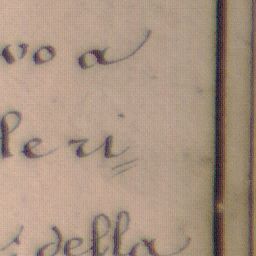 vo a
leri
della